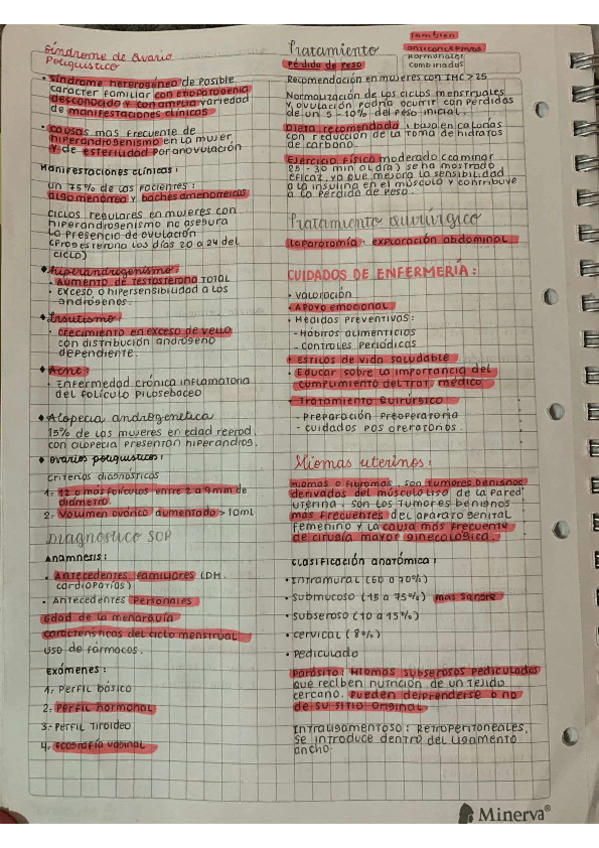 Síndrome de Ovario
Poliquístico
• Síndrome heterogéneo de posible
caracter familiar con etiopatogenia
desconocida y con amplia variedad
de manifestaciones clínicas
• causas mas frecuente de
hiperandrogenismo en la mujer
y de esterilidad por anovulación
Manifestaciones clínicas:
un 75% de las pacientes:
algomenorrea y baches amenorreicas
ciclos regulares en mujeres con
hiperandrogenismo no asegura
la presencio de ovulación
(progesterona los días 20 a 24 del
ciclo)
♦ Hiperandrogenismo:
• Aumento de testosterona total
• Exceso o hipersensibilidad a los
andrógenos.
♦ Hirsutismo:
• crecimiento en exceso de vello
con distribución andrógeno
dependiente.
♦ Acné:
• Enfermedad crónica inflamatoria
del folículo pilosebáceo
♦ Alopecia androgenetica
15% de las mujeres en edad reprod.
con alopecia presentan hiperandros.
♦ ovarios poliquisticos:
criterios diagnósticos
1- 12 o mas folículos entre 2 a 9mm de
diámetro.
2- Volumen ovárico aumentado >10ml
Diagnostico SOP
Anamnesis:
• Antecedentes familiares (DM.
cardiopatías)
• Antecedentes personales
Edad de la menarquía
características del ciclo menstrual
uso de fármocos.
Exámenes:
1- Perfil básico
2- Perfil hormonal
3- Perfil Tiroideo
4- Ecografía vaginal
Tratamiento
También
anticonceptivos
hormonales
combinadas
Pérdida de peso
Recomendación en mujeres con IMC > 25
Normalización de los ciclos menstruales
y ovulación podría ocurrir con pérdidas
de un 5 - 10% del peso inicial.
Dieta recomendada: baja en calorías
con reducción de la toma de hidratos
de carbono.
Ejercicio físico moderado (caminar
25 - 30 min al día) se ha mostrado
eficaz, ya que mejora la sensibilidad
a la insulina en el músculo y contribuye
a la pérdida de peso.
Tratamiento Quirúrgico
Laparotomía: exploración abdominal
CUIDADOS DE ENFERMERÍA:
• Valoración
• Apoyo emocional
• Medidas preventivas:
- Hábiros alimenticios
- Controles periódicas
• Estilos de vida saludable
• Educar sobre la importancia del
cumplimiento del trat. médico
• Tratamiento Quirúrsico
- Preparación preoperatoria
- cuidados pos operatorios.
Miomas uterinos:
Miomas o fibromas, son tumores benignos
derivados del músculo liso de la pared
uterina. Son los tumores benignos
más frecuentes del aparato genital
femenino y la causa más frecuente
de cirugía mayor ginecológica.
Clasificación anatómica:
• Intramural (60 a 70%)
• Submucoso (15 a 75%) mas sangre
• Subseroso (10 a 15%)
• cervical (8%)
• Pediculado
Parásito: Miomas subserosos pediculados
que reciben nutrición de un tejido
cercano. Pueden desprenderse o no
de su sitio original
Intraligamentoso: Retroperitoneales,
se introduce dentro del ligamento
ancho.
Minerva®